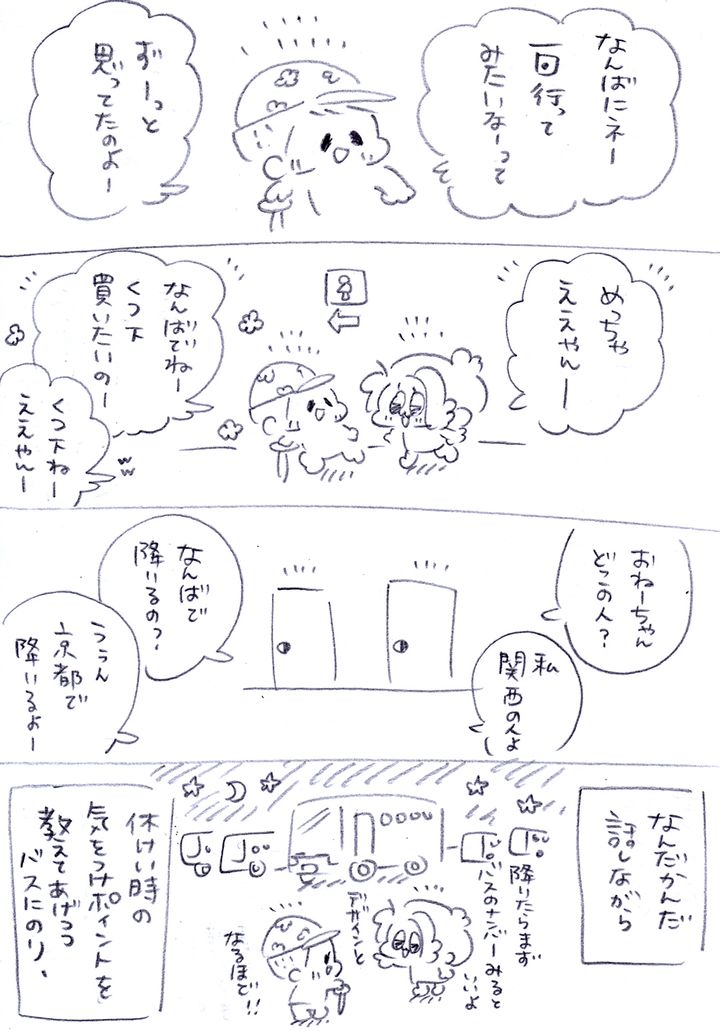 なんばにネー
一回行って
みたいなーって
ずーっと
思ってたのよー
めっちゃ
ええやんー
なんばでねー
くつ下
買いたいのー
くつ下ねー
ええやんー
ww
おねーちゃん
どこの人？
私
関西の人よ
なんばで
降りるの？
ううん
京都で
降りるよー
なんだかんだ
話しながら
降りたらまず
バスのナンバーみると
いいよ
デザインと
なるほど!!
休けい時の
気をつけポイントを
教えてあげつつ
バスにのり、